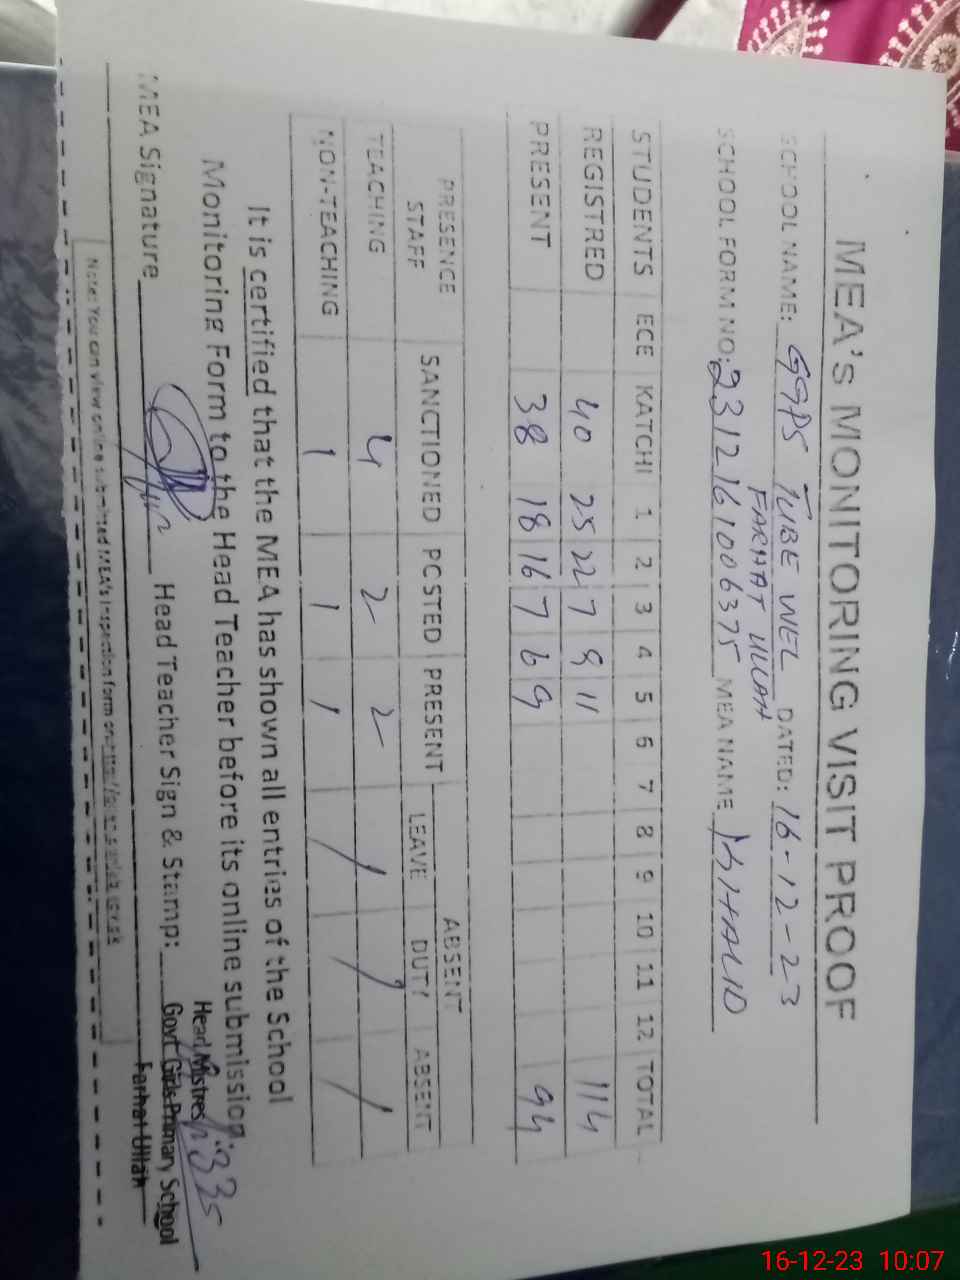 MEA'S MONITORING VISIT PROOF
SCHOOL NAME: GGPS TUBE WEL DATED: 16-12-23
FARHAT ULLAH
SCHOOL FORM NO: 2312161006375 MEA NAME KHALID
STUDENTS ECE KATCHI 1 2 3 4 5 6 7 8 9 10 11 12 TOTAL
REGISTRED 40 25 22 7 9 11 114
PRESENT 38 18 16 7 6 9 94
PRESENCE ABSENT
STAFF SANCTIONED POSTED PRESENT LEAVE DUTY ABSENT
TEACHING 4 2 2 / / /
NON-TEACHING 1 1 1
It is certified that the MEA has shown all entries of the School
Monitoring Form to the Head Teacher before its online submission.
MEA Signature Head Teacher Sign & Stamp:
Head Mistress
Govt Girls Primary School
Farhat Ullah
Note: You can view online submited MEA's Inspection form on
16-12-23 10:07